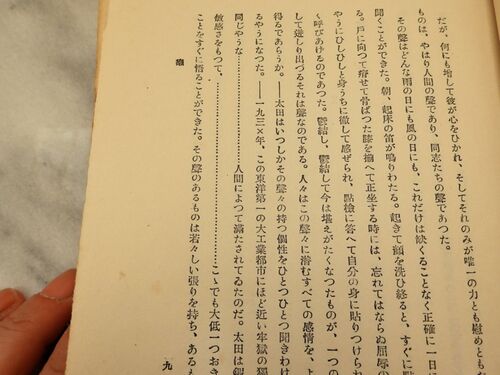 だが、何にも増して彼が心をひかれ、そしてそれのみが唯一の力とも慰めともな
ものは、やはり人間の聲であり、同志たちの聲であつた。
その聲はどんな雨の日にも風の日にも、これだけは缺くることなく正確に一日に
聞くことができた。朝、起床の笛が鳴りわたる。起きて顔を洗ひ終ると、すぐに點
る。戸に向つて痩せて骨ばつた膝を揃へて正坐する時には、忘れてはならぬ屈辱の
やうにひしひしと身うちに徹して感ぜられ、點檢に答へて自分の身に貼りつけられ
く呼びあげるのであつた。鬱結し、鬱結して今は堪えがたくなつたものが、一つの
して迸り出づるそれは聲なのである。人々はこの聲々に潜むすべての感情を、よ
得るであらうか。——太田はいつしかその聲々の持つ個性をひとつひとつ聞きわけ
るやうになつた。——一九三×年、この東洋第一の大工業都市にほど近い牢獄の獨
同じやうな…………………人間によつて滿たされてゐたのだ。太田は鋭
敏感さをもつて、…………………………………こゝでも大低一つおき
ことをすぐに悟ることができた。その聲のあるものは若々しい張りを持ち、あるも
癩
九